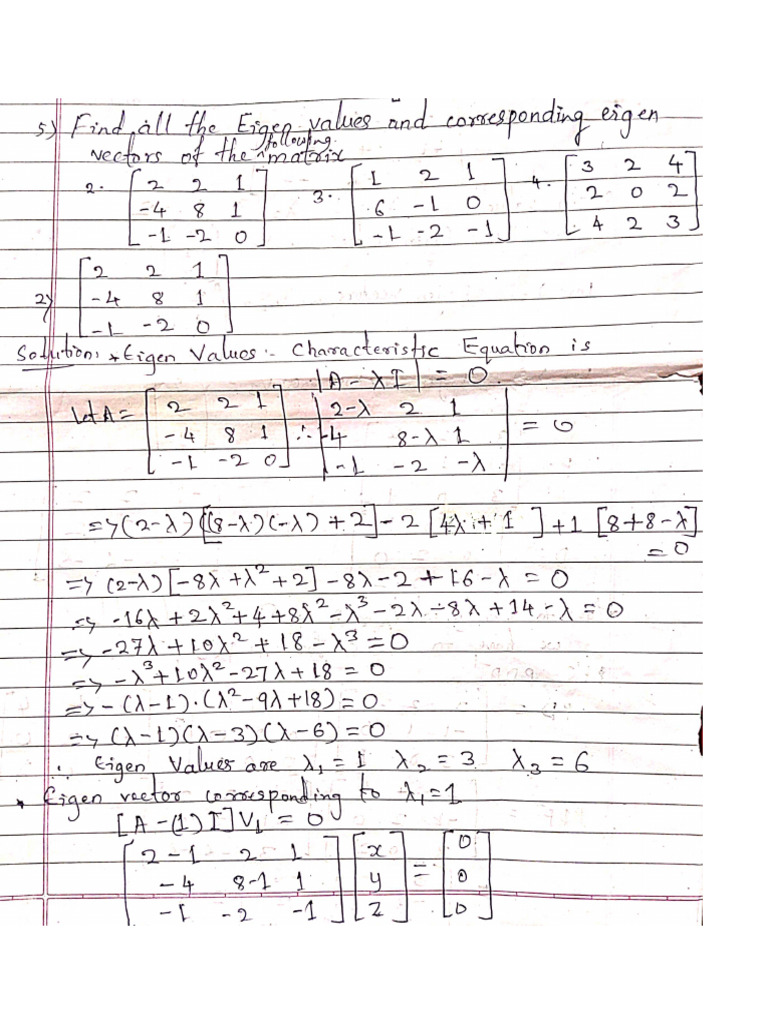 5) Find all the Eigen values and corresponding eigen
vectors of the following matrix
2. [2 2 1; -4 8 1; -1 -2 0] 3. [1 2 1; 6 -1 0; -1 -2 -1] 4. [3 2 4; 2 0 2; 4 2 3]
2) [2 2 1; -4 8 1; -1 -2 0]
Solution: * Eigen Values :- Characteristic Equation is
|A - λI| = 0.
Let A = [2 2 1; -4 8 1; -1 -2 0] ∴ |2-λ 2 1; -4 8-λ 1; -1 -2 -λ| = 0
=> (2-λ)[(8-λ)(-λ) + 2] - 2 [4λ + 1] + 1 [8+8-λ]
= 0
=> (2-λ)[-8λ + λ² + 2] - 8λ - 2 + 16 - λ = 0
=> -16λ + 2λ² + 4 + 8λ² - λ³ - 2λ - 8λ + 14 - λ = 0
=> -27λ + 10λ² + 18 - λ³ = 0
=> -λ³ + 10λ² - 27λ + 18 = 0
=> -(λ-1).(λ² - 9λ + 18) = 0
=> (λ-1)(λ-3)(λ-6) = 0
∴ Eigen Values are λ₁ = 1 λ₂ = 3 λ₃ = 6
* Eigen vector corresponding to λ₁ = 1
[A - (1) I] V₁ = 0
[2-1 2 1; -4 8-1 1; -1 -2 -1] [x; y; z] = [0; 0; 0]